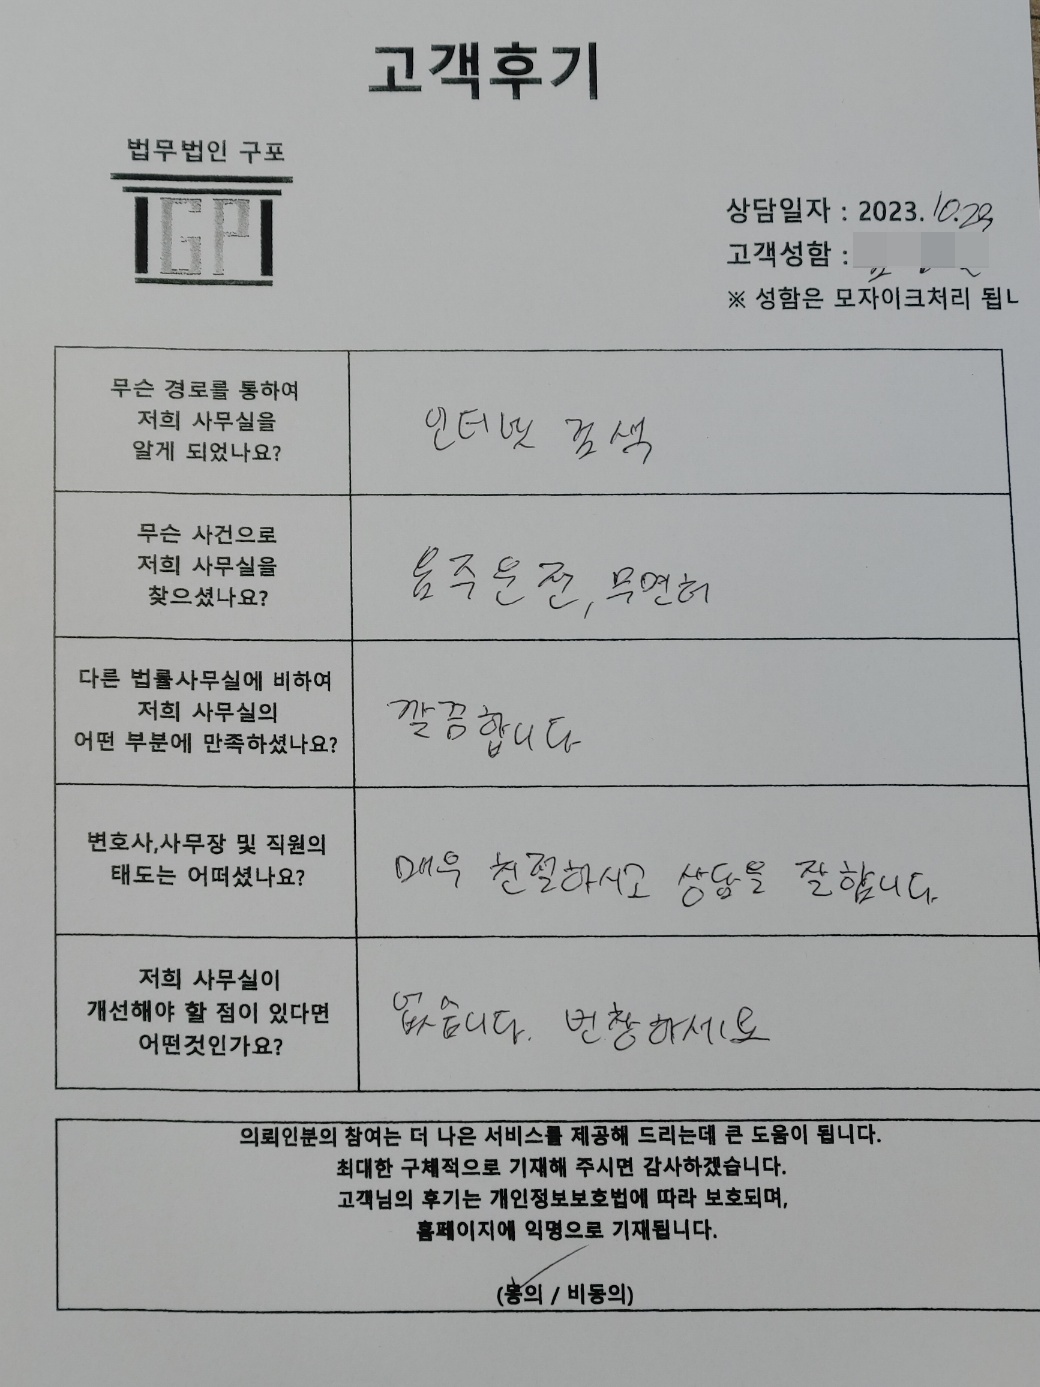 고객후기
법무법인 구포
GP
상담일자 : 2023. 10.23
고객성함 :
※ 성함은 모자이크처리 됩ㄴ
무슨 경로를 통하여
저희 사무실을
알게 되었나요?
인터넷 검색
무슨 사건으로
저희 사무실을
찾으셨나요?
음주운전, 무면허
다른 법률사무실에 비하여
저희 사무실의
어떤 부분에 만족하셨나요?
깔끔합니다
변호사,사무장 및 직원의
태도는 어떠셨나요?
매우 친절하시고 상담을 잘합니다.
저희 사무실이
개선해야 할 점이 있다면
어떤것인가요?
없습니다. 번창하세요
의뢰인분의 참여는 더 나은 서비스를 제공해 드리는데 큰 도움이 됩니다.
최대한 구체적으로 기재해 주시면 감사하겠습니다.
고객님의 후기는 개인정보보호법에 따라 보호되며,
홈페이지에 익명으로 기재됩니다.
(동의 / 비동의)